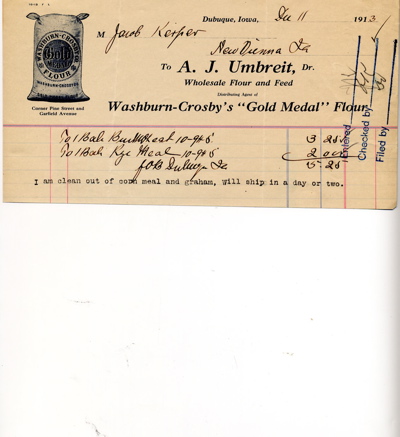 Dubuque, Iowa, Dec 11 1913
M Jacob Kerper
New Vienna Ia
To A. J. Umbreit, Dr.
Wholesale Flour and Feed
Distributing Agent of
Washburn-Crosby's "Gold Medal" Flour
WASHBURN-CROSBY'S
GOLD MEDAL
FLOUR
WASHBURN-CROSBY CO.
Corner Pine Street and
Garfield Avenue
Entered
Checked by
Filed by
To 1 Bale Buckwheat 10-9& 5 3 25
To 1 Bale Rye Meal 10-9& 5 2 00
FOB Dubuque Ia 5 25
I am clean out of corn meal and graham, will ship in a day or two.